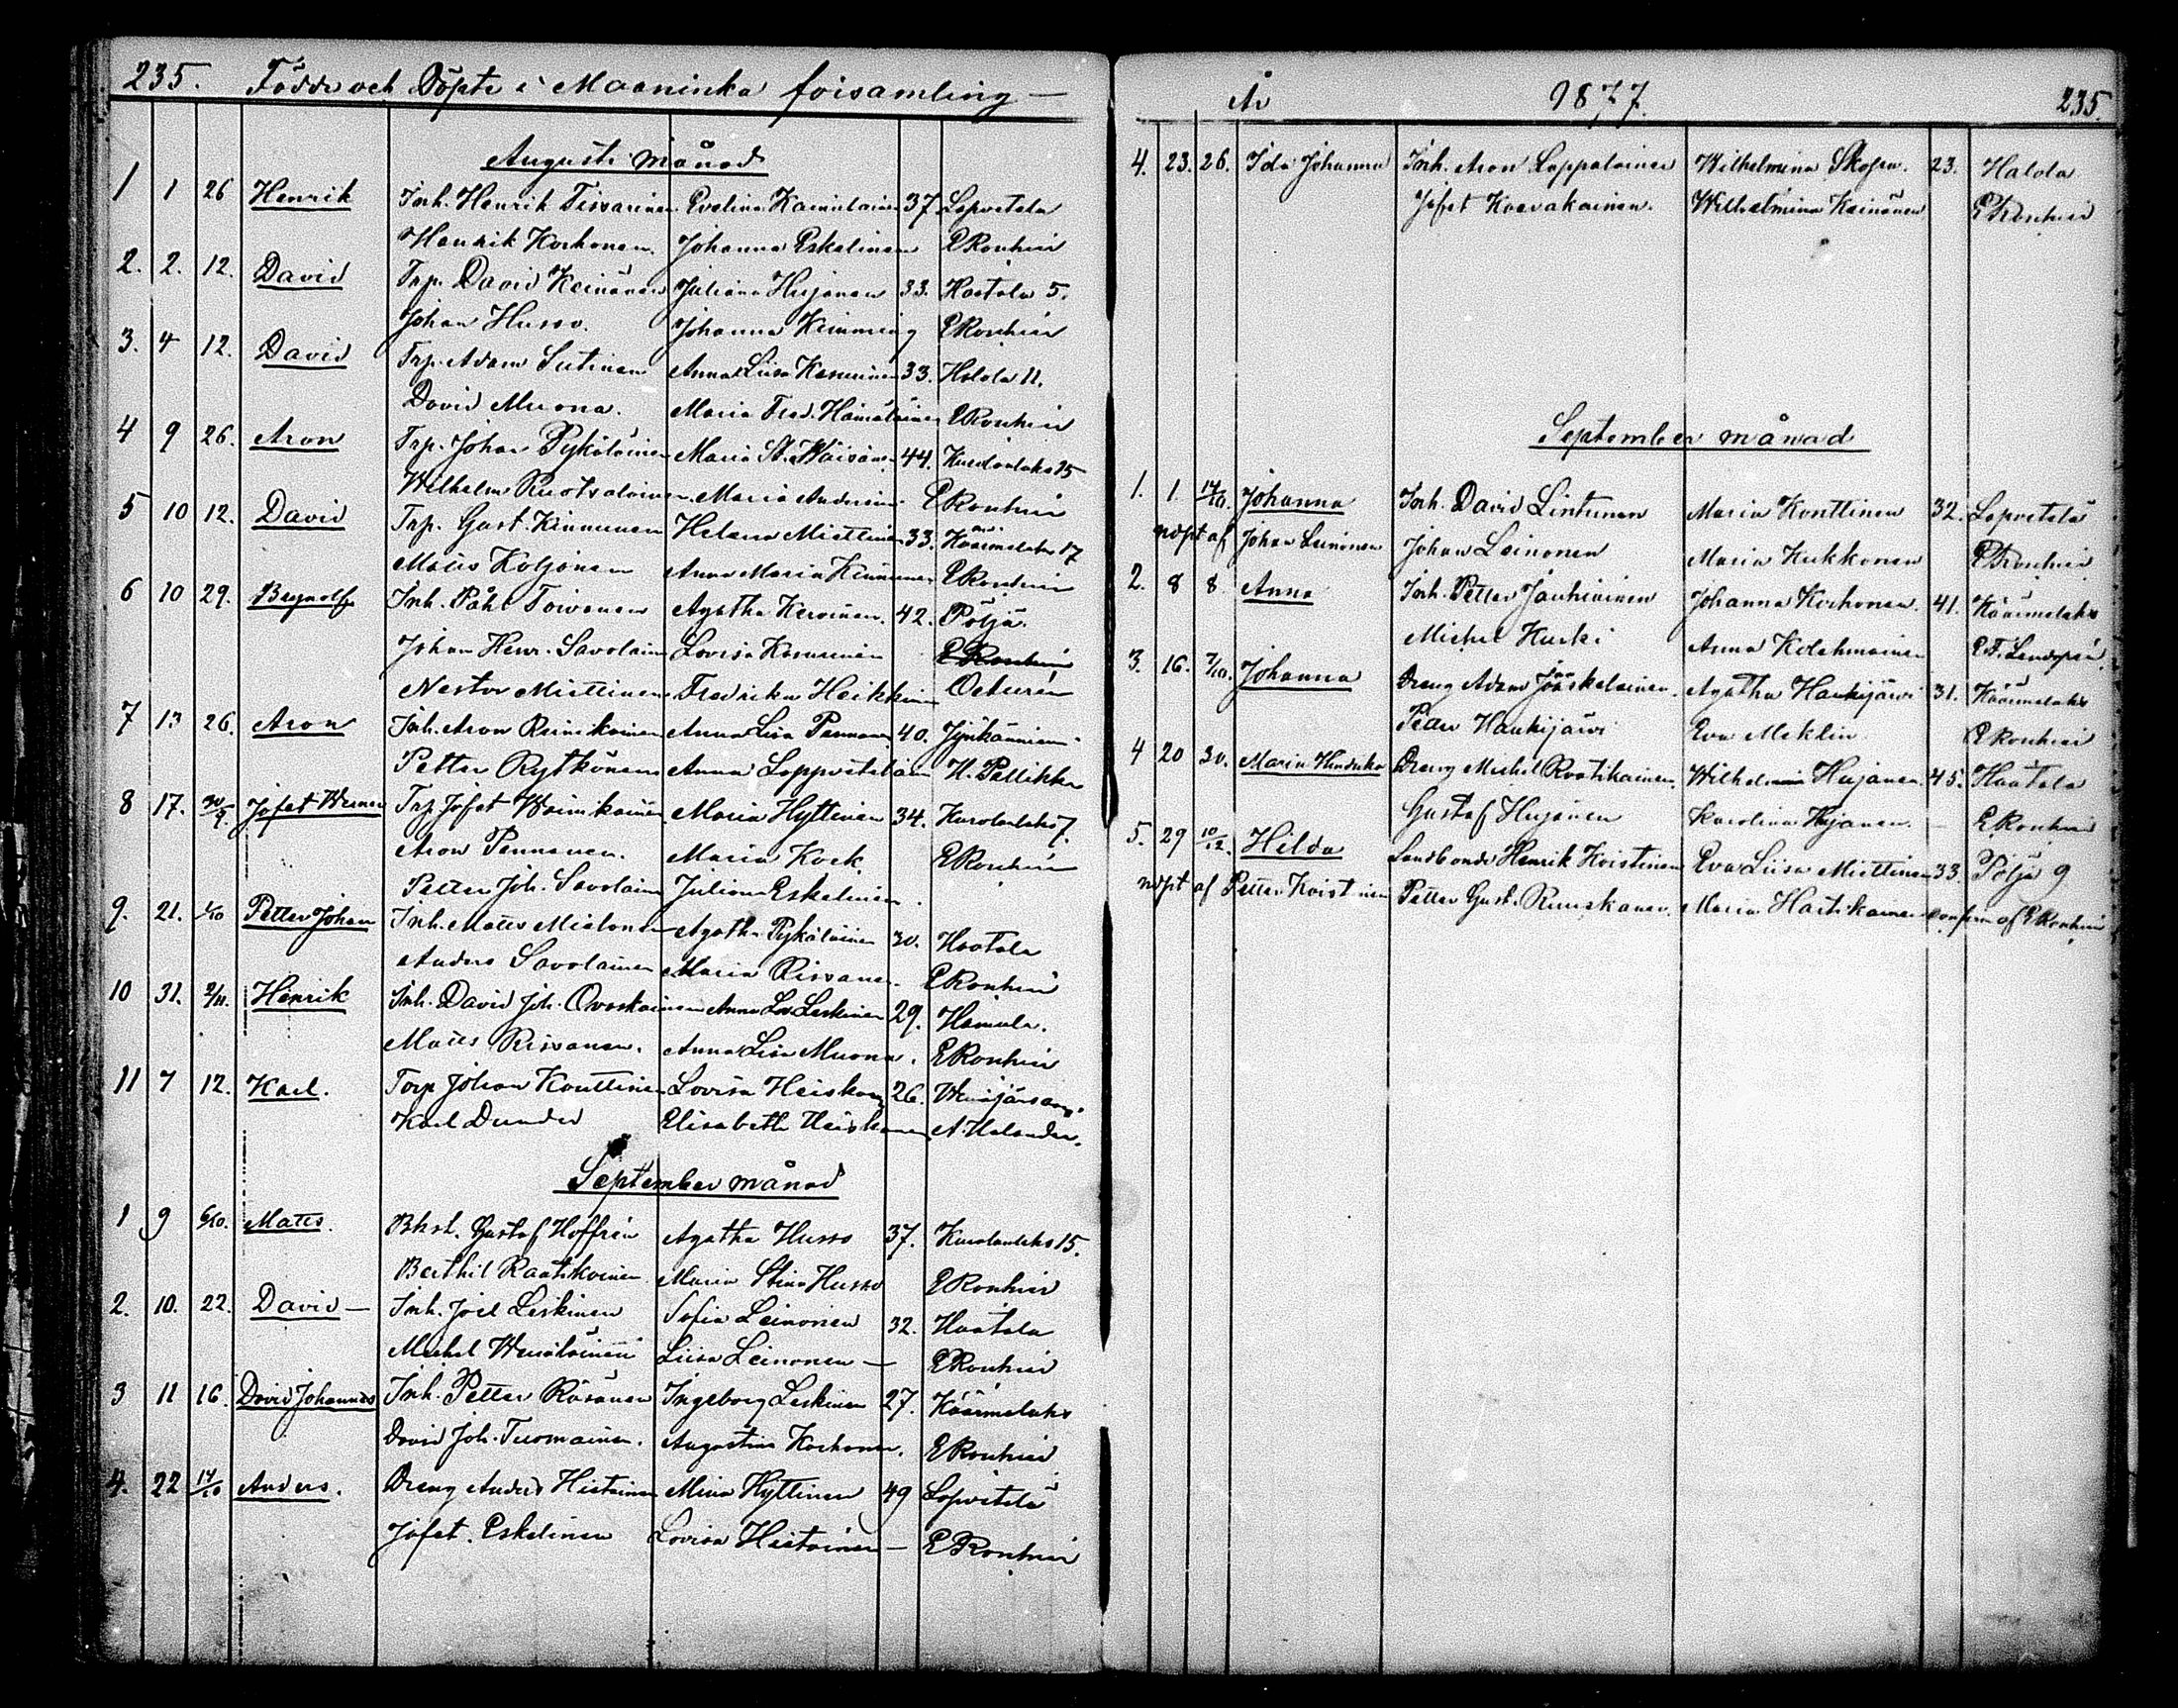 235. Födde och Döpte i Maaninka församling —
Augusti månad
1 1 26 Henrik Inh. Henrik Tissarinen Evelina Kainulainen 37. Lapvetelä
Henrik Korhonen. Johanna Eskelinen E Ronhin
2. 2. 12. David Trp. David Keinänen Juliana Hujanen 33. Haatala 5.
Johan Husso. Johanna Kimming E Ronhin
3. 4 12. David Trp. Adam Sutinen Anna Liisa Kasurinen 33. Halola 11.
David Muona. Maria Fred. Hämäläinen E Ronhin
4 9 26. Aron Trp. Johan Pykäläinen Maria St. Wäisänen 44. Kurolanlaks 15
Wilhelm Ruotsalainen. Maria Andersin E Ronhin
5 10 12. David Trp. Gust. Kinnunen Helena Miettinen 33. Käärmelaks 17
Matts Koljonen Anna Maria Kinnunen E Ronhin
6 10 29. Brynolf Inh. Påhl Toivanen Agatha Kervinen. 42. Pöljä.
Johan Henr. Savolainen Lovisa Kasurinen E Ronhin
Nestor Miettinen Fredrika Heikkinen
7 13 26. Aron Inh. Aron Reinikainen Anna Lisa Pennanen 40. Jynkänniemi
Petter Rytkönen Anna Loppvetelän H. Pellikka
8 17. 30/9. Jofet Werner Trp Jofet Wainikainen Maria Hyttinen 34. Kurolanlaks 7.
Aron Pennanen. Maria Kock E Ronhin
Petter Joh. Savolainen Juliana Eskelinen.
9. 21. 1/10 Petter Johan Inh. Matts Agatha Pykäläinen 30. Haatala
Anders Savolainen Maria Rissanen. E Ronhin
10 31. 2/11. Henrik Inh. David Joh. Ovaskainen Anna Lov. Leskinen 29. Hamula.
Matts Rissanen. Anna Lisa Muona. E Ronhin
11 7 12. Karl. Torp Johan Konttinen Lovisa Heiskanen 26.
Karl Dunder Elisabeth Heiskanen A. Helander.
September månad
1 9 6/10. Matts. Bhsl. Gustaf Hoffrén Agatha Husso 37. Kurolanlaks 15.
Berthil Raatikainen Maria Stina Husso E Ronhin
2. 10. 22. David — Inh. Joel Leskinen Sofia Leinonen 32. Haatala
Michel Wenäläinen Liisa Leinonen — E Ronhin
3 11 16. David Johannes Inh. Petter Räsänen Ingeborg Leskinen 27. Käärmelaks
David Joh. Tuomainen. Augustina Korhonen. E Ronhin
4. 22 14/10 Anders. Dreng Anders Hietainen Mina Hyttinen 49 Lapvetelä
Jofet. Eskelinen Lovisa Hietainen — E Ronhin
År 1877. 235.
4. 23. 26. Ida Johanna Inh. Aron Lappalainen Wilhelmina 23. Halola
Jofet Kuavakainen. Wilhelmina Keinänen E Ronhin
September månad
1. 1. 14/10. Johanna Inh. David Lintunen Maria Konttinen 32. Lapvetelä
nödpt af Johan Leinonen Johan Leinonen Maria Kukkonen E Ronhin
2. 8 8. Anna Inh. Petter Jauhiainen Johanna Korhonen. 41. Käärmelaks
Michel Hurki Anna Kolehmainen
3. 16. 7/10. Johanna Dreng Adam Jääskelainen. Agatha Haukijärvi 31. Käärmelaks
Pear Haukijärvi Eva Meklin E Ronhin
4 20 30. Maria Hendrika Dreng Michel Raatikainen. Wilhelmin Hujanen. 45. Haatala
Gustaf Hujanen Karolina Hujanen. — E Ronhin
5. 29 10/12. Hilda Landbonde Henrik Koistinen Eva Liisa Miettinen 33. Pöljä 9
nödpt af Petter Koistinen Petter Gust. Ruuskanen. Maria Hartikainen confirm af E Ronhin